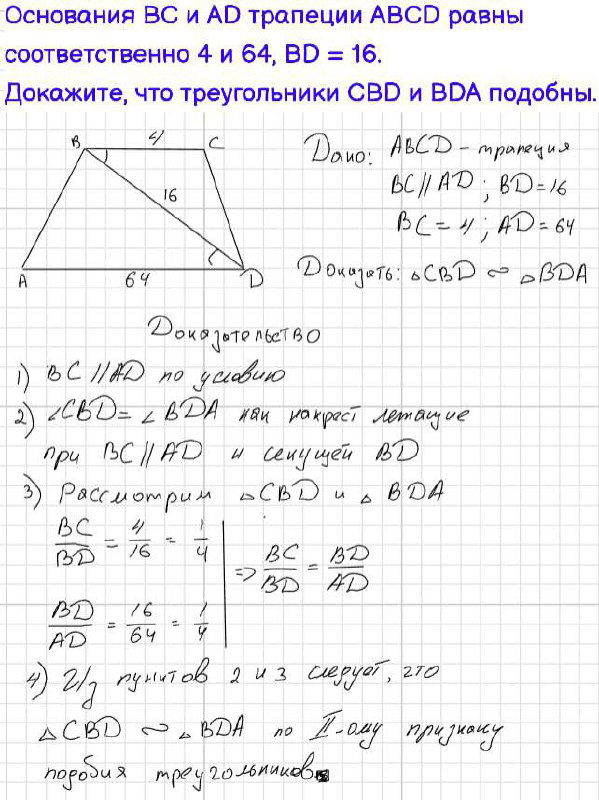 Основания BC и AD трапеции ABCD равны
соответственно 4 и 64, BD = 16.
Докажите, что треугольники CBD и BDA подобны.
B 4 C
16
A 64 D
Дано: ABCD - трапеция
BC || AD ; BD = 16
BC = 4 ; AD = 64
Доказать: △CBD ∾ △BDA
Доказательство
1) BC || AD по условию
2) ∠CBD = ∠BDA как накрест лежащие
при BC || AD и секущей BD
3) Рассмотрим △CBD и △BDA
BC/BD = 4/16 = 1/4
BD/AD = 16/64 = 1/4
=> BC/BD = BD/AD
4) Из пунктов 2 и 3 следует, что
△CBD ∾ △BDA по II-ому признаку
подобия треугольников